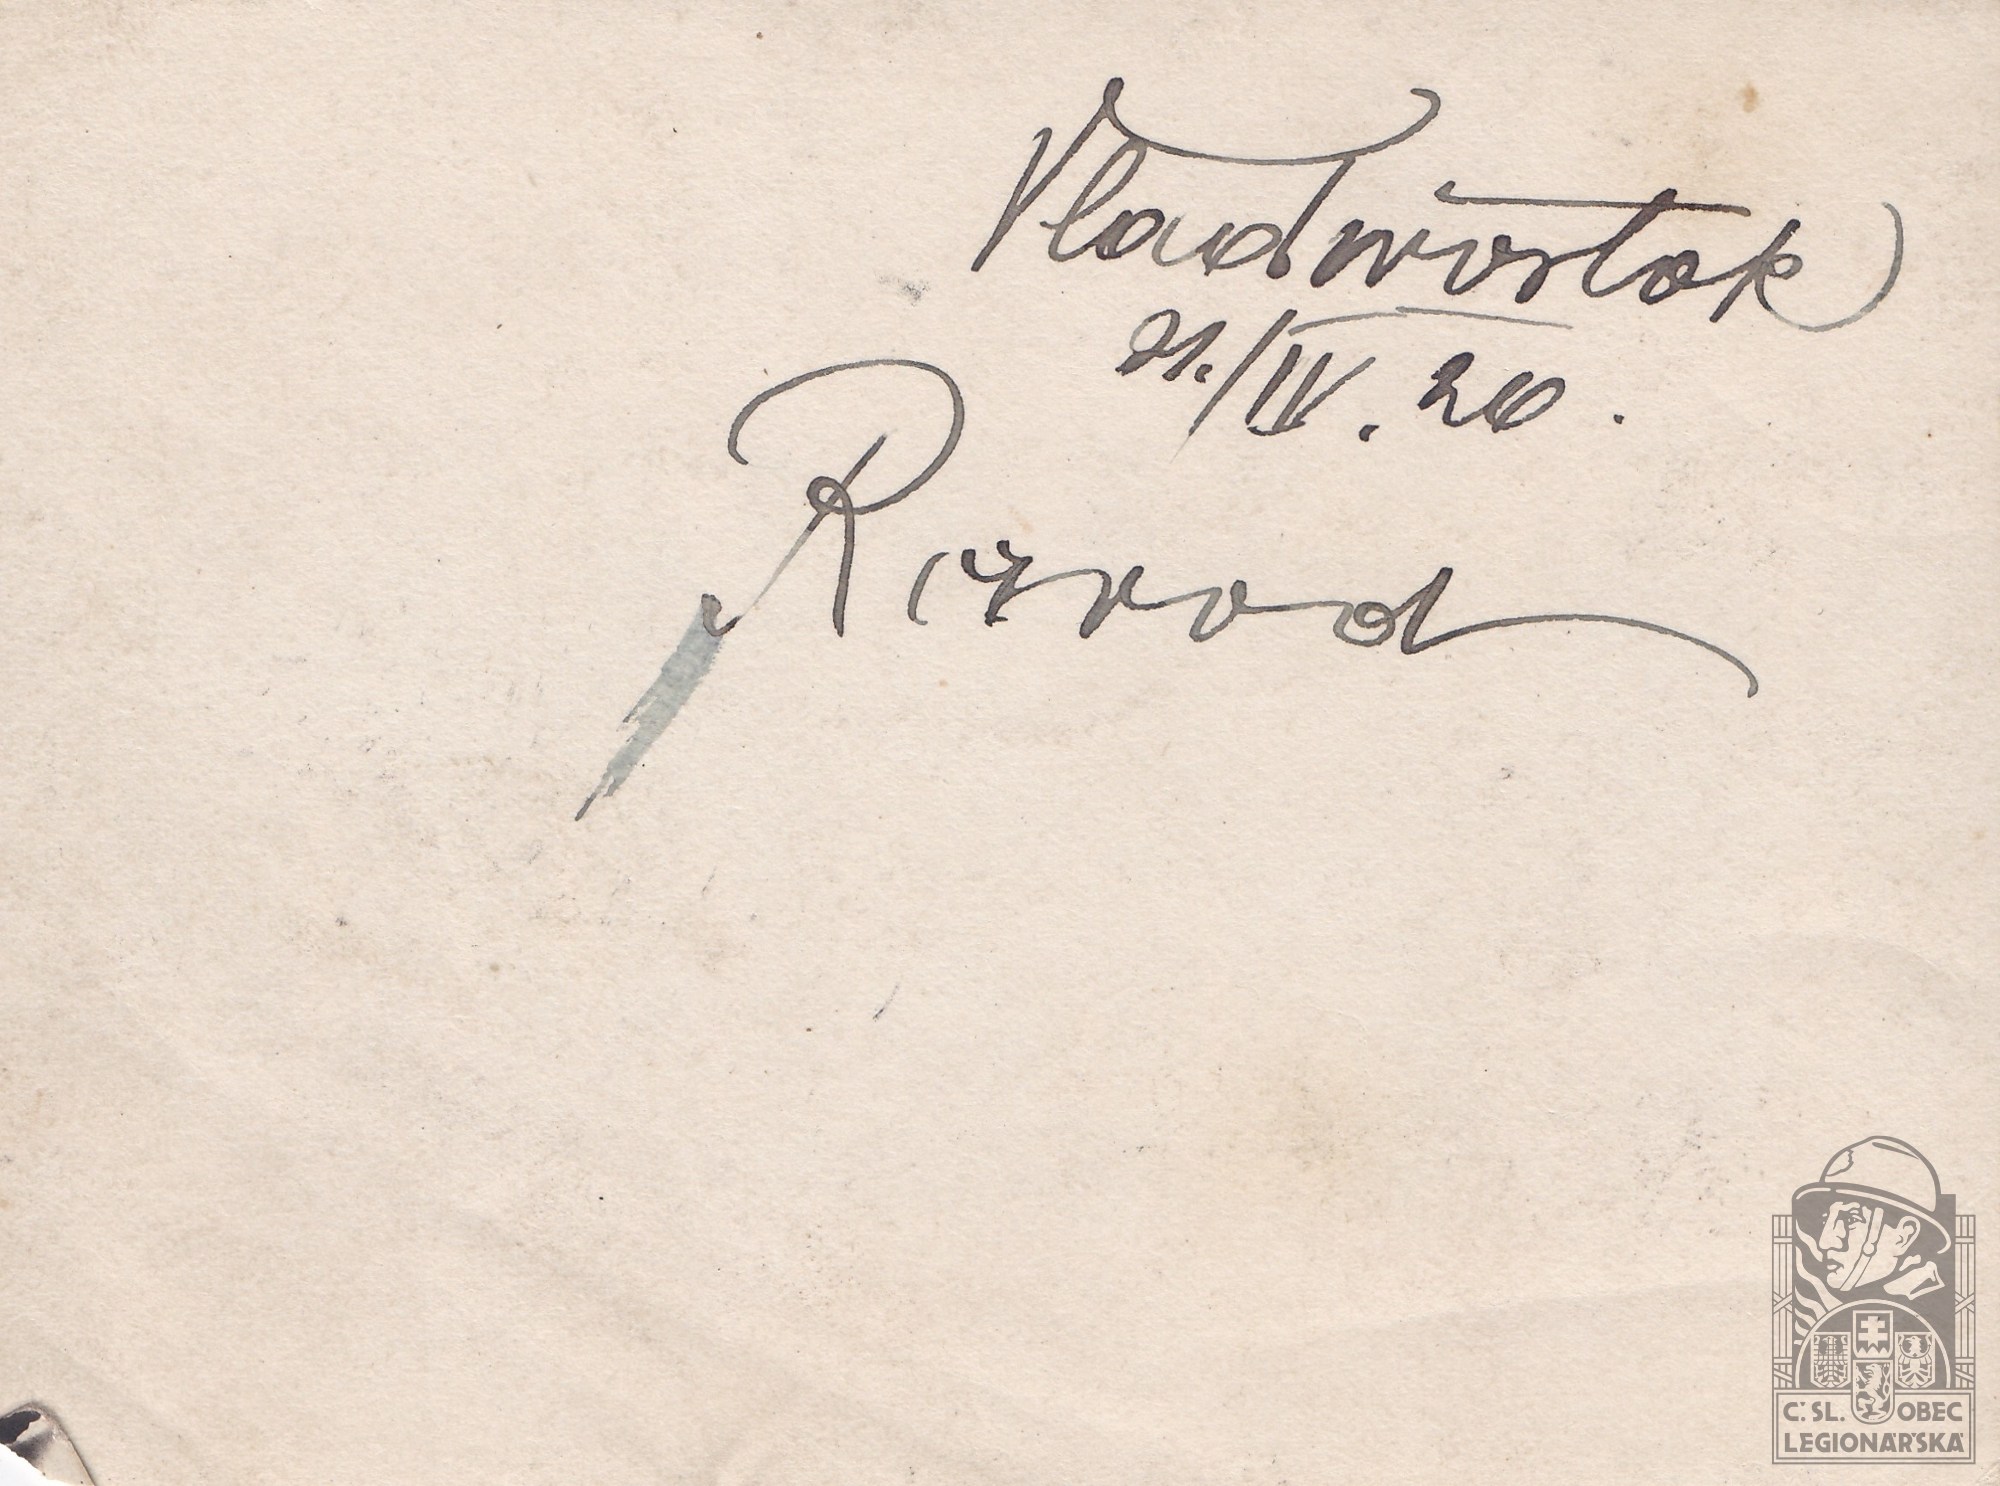 Vladivostok
21./IV. 20.
Rozvod
Č. SL. OBEC
LEGIONÁŘSKÁ